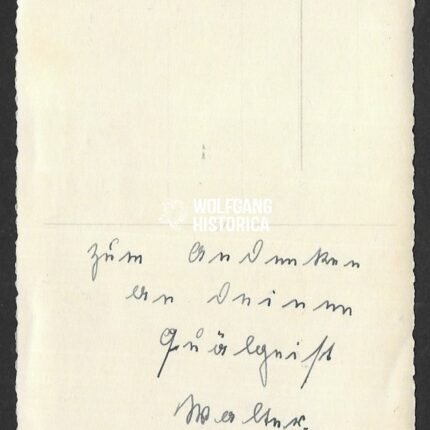 WOLFGANG
HISTORICA
zum Andenken
an deinen
Quälgeist
Walter.